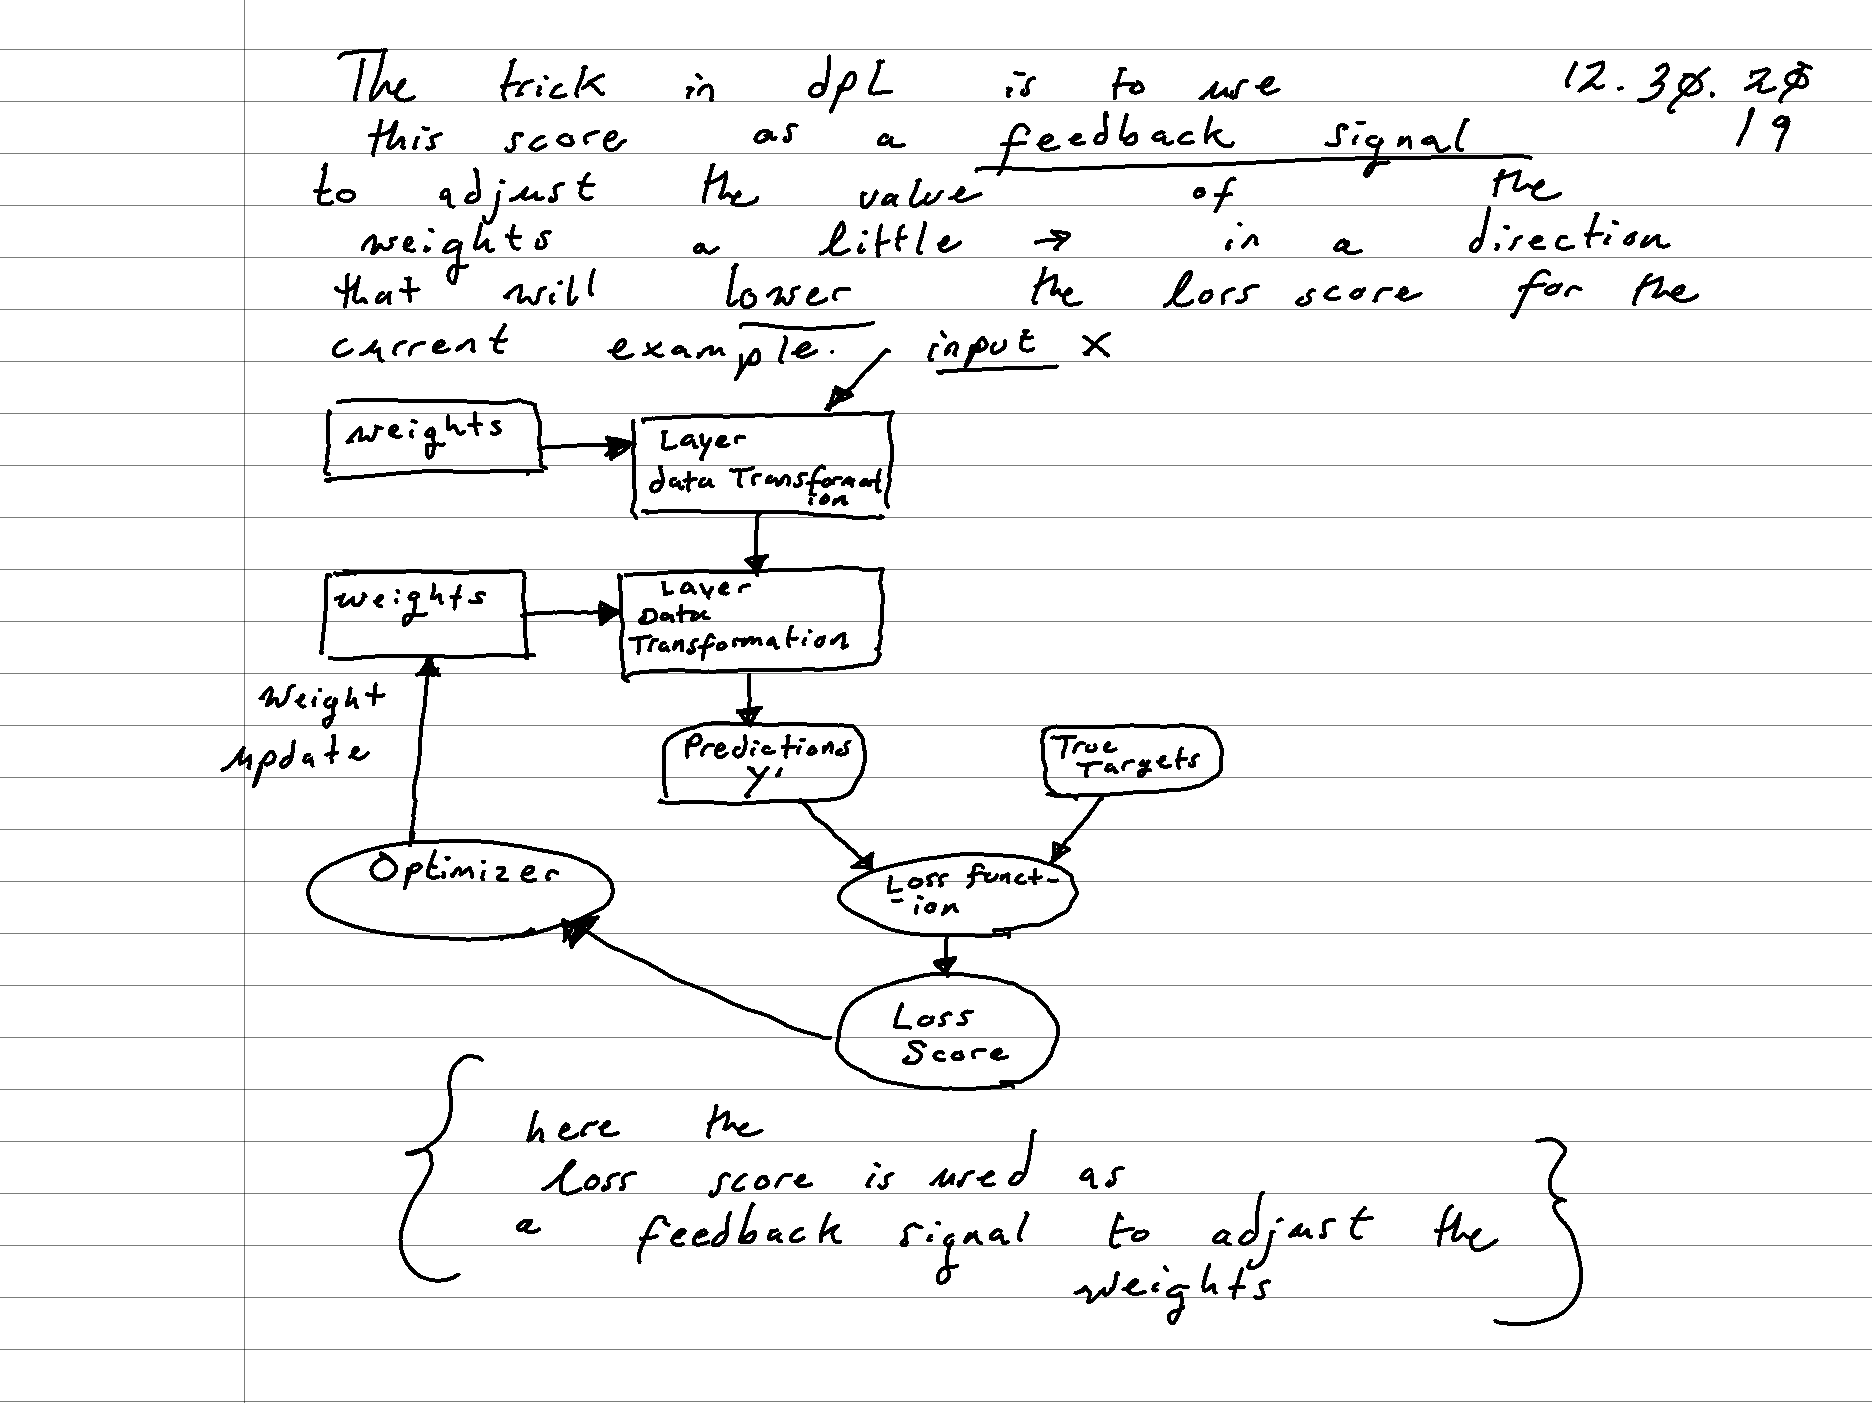 The trick in dpL is to use 12.30.20
this score as a feedback signal 19
to adjust the value of the
weights a little → in a direction
that will lower the loss score for the
current example. input x
weights
Layer
data Transformat
ion
weights
Layer
Data
Transformation
Weight
update
Predictions
Y'
True
Targets
Optimizer
Loss funct-
-ion
Loss
Score
here the
loss score is used as
a feedback signal to adjust the
weights